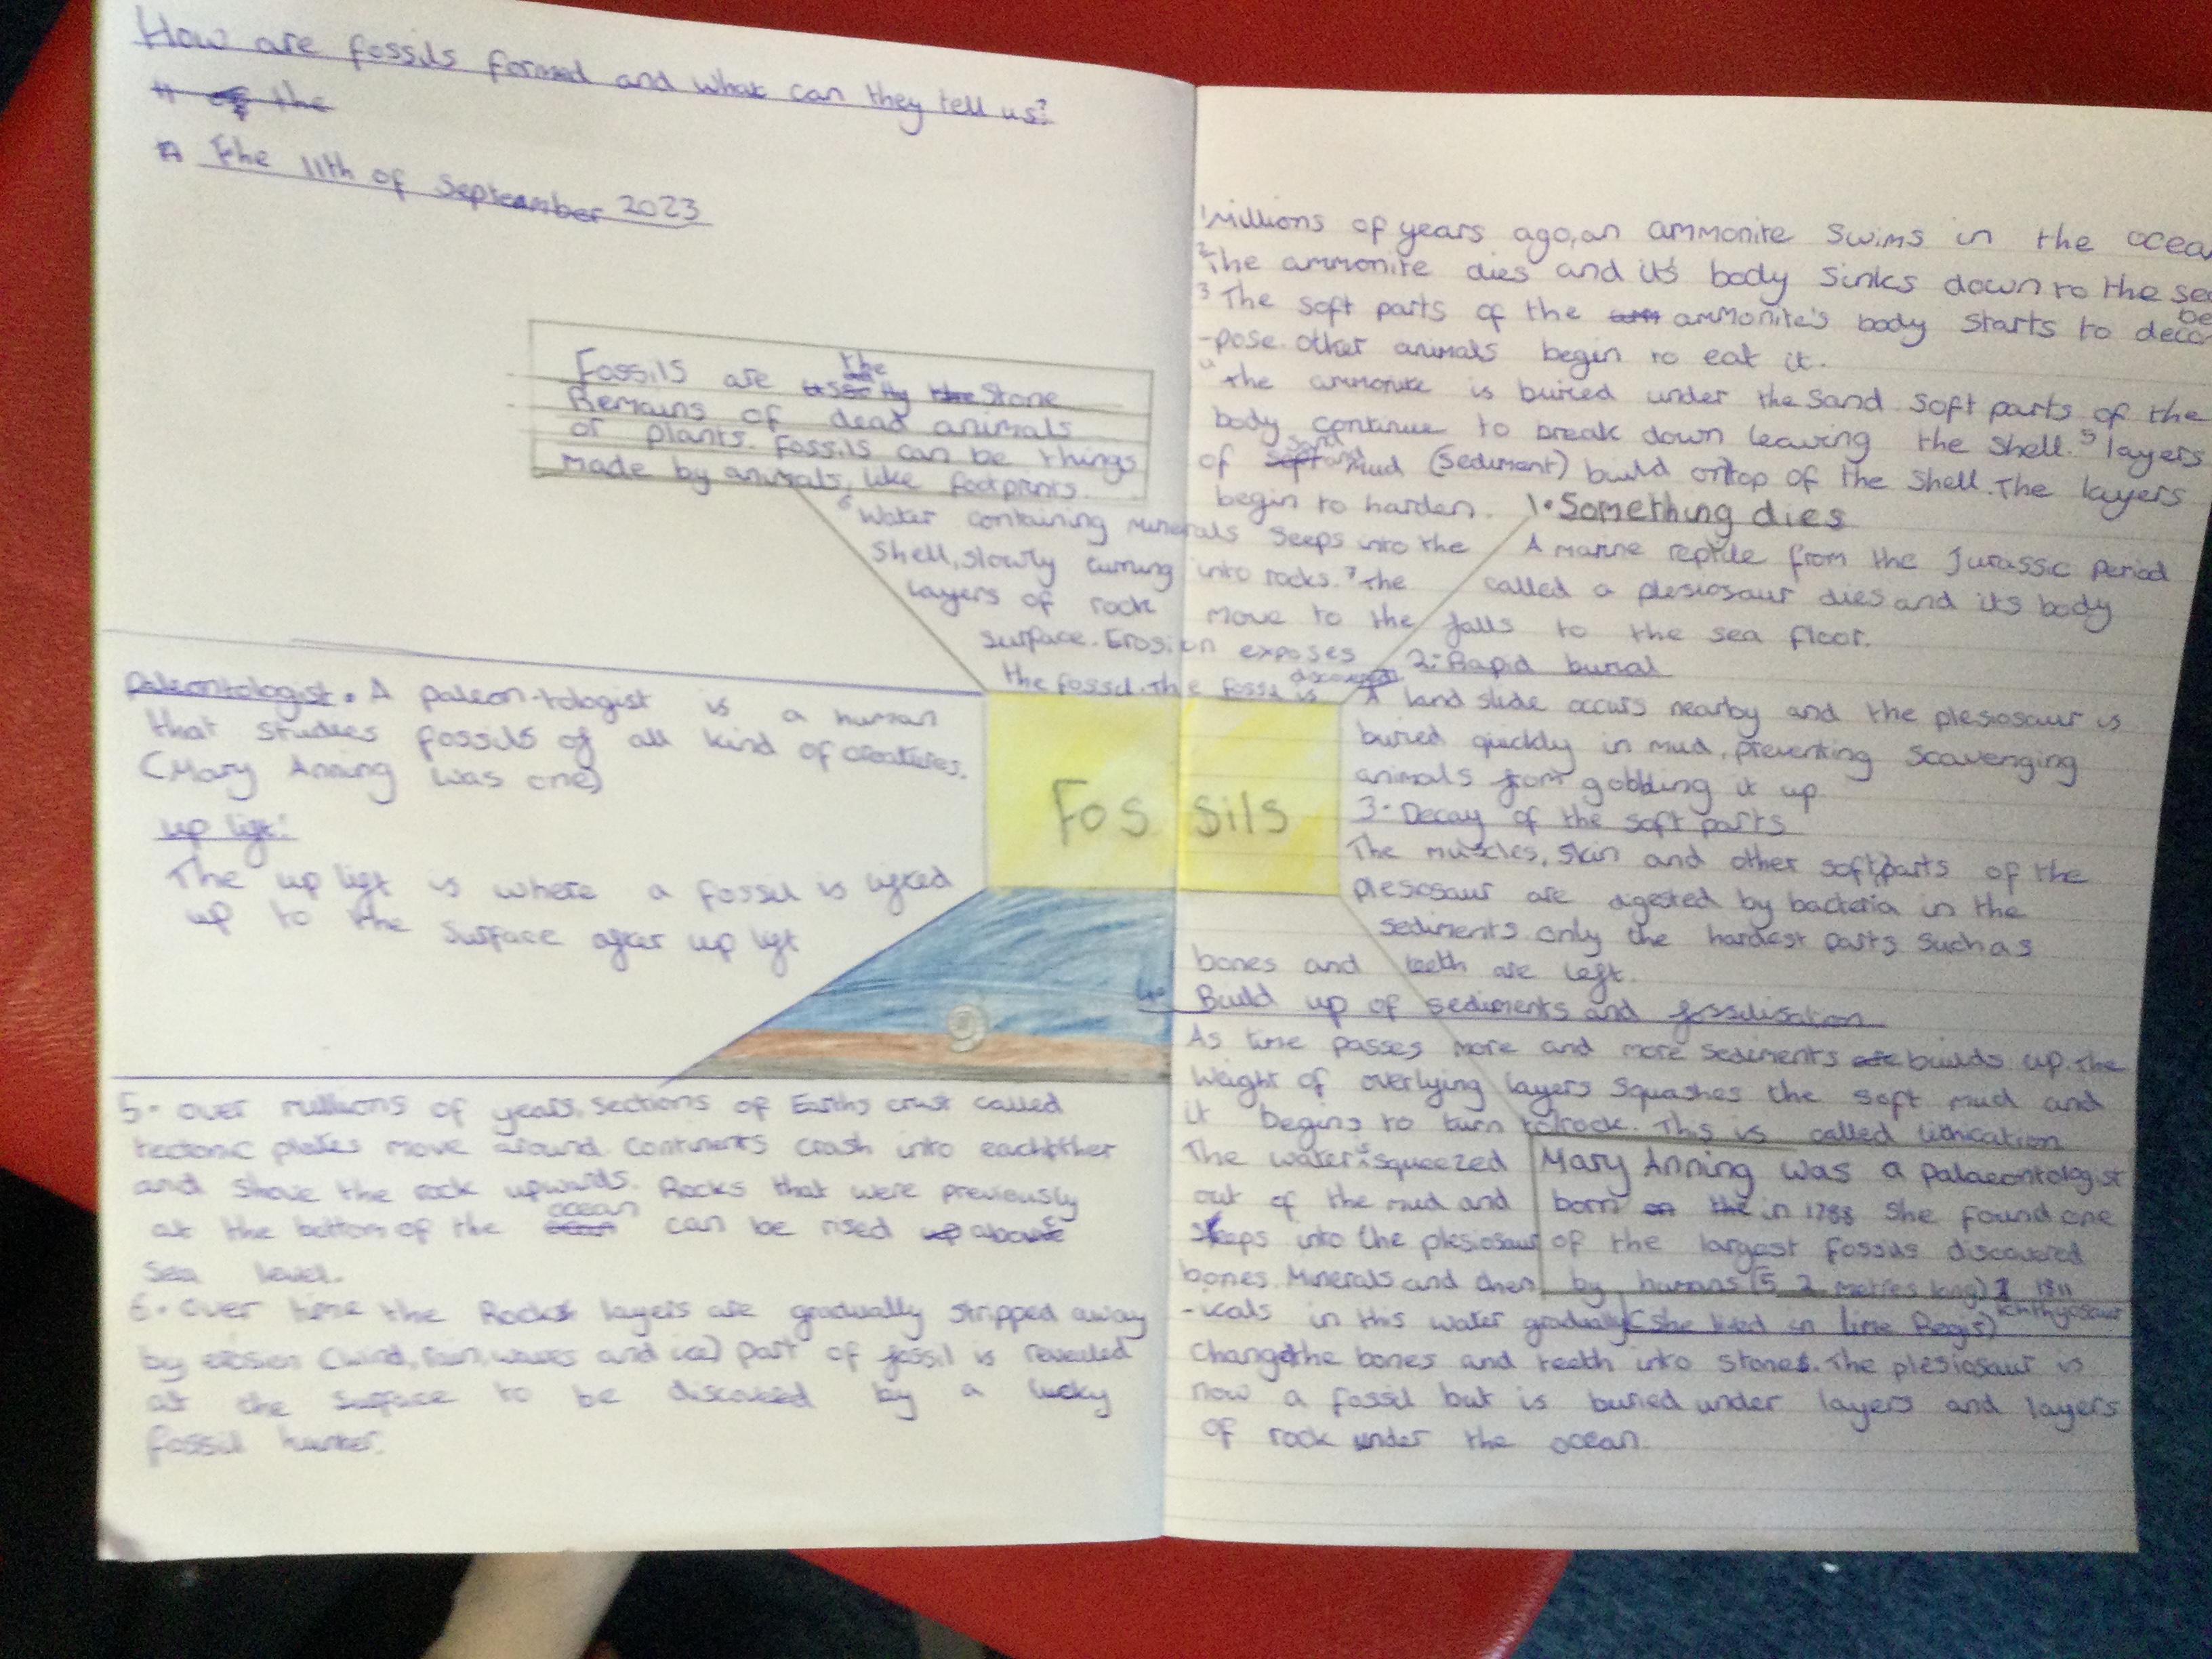 How are fossils formed and what can they tell us?
the
The 11th of September 2023
Fossils are the Stone
Remains of dead animals
or plants. Fossils can be things
made by animals, like footprints.
1 Millions of years ago, an ammonite swims in the ocea
2 The ammonite dies and it's body sinks down to the sea
be
3 The soft parts of the ammonite's body starts to decom
-pose. Other animals begin to eat it.
4 The ammonite is buried under the sand soft parts of the
body continue to break down leaving the shell. 5 layers
of sand and mud (sediment) build ontop of the shell. The layers
begin to harden.
6 Water containing minerals seeps into the
shell, slowly turning into rocks. 7 The
layers of rock move to the
surface. Erosion exposes
the fossil. The fossil is discovered
1. Something dies
A marine reptile from the Jurassic period
called a plesiosaur dies and its body
falls to the sea floor.
2: Rapid burial
A land slide occurs nearby and the plesiosaur is
buried quickly in mud, preventing scavenging
animals from gobbling it up
3. Decay of the soft parts
The muscles, skin and other soft parts of the
plesosaur are digested by bacteria in the
sediments. only the hardest parts such as
bones and teeth are left.
4. Build up of sediments and fossilisation
As time passes more and more sediments builds up. The
weight of overlying layers squashes the soft mud and
it begins to turn to rock. This is called lithication
The water is squeezed
out of the mud and
seeps into the plesiosaur
bones. Minerals and chem
-icals in this water gradually
change the bones and teeth into stones. The plesiosaur is
now a fossil but is buried under layers and layers
of rock under the ocean.
Mary Anning was a palaeontologist
born in 1788 She found one
of the largest fossils discovered
by humans (5.2 metres long) 1811
ichthyosaur
(She lived in lime Regis)
Fossils
Paleontologist. A paleon-tologist is a human
that studies fossils of all kind of creatures.
(Mary Anning was one)
up lift:
The up lift is where a fossil is lifted
up to the surface after up lift
5. Over millions of years, sections of Earths crust called
tectonic plates move around. Continents crash into each other
and shove the rock upwards. Rocks that were previously
at the bottom of the ocean can be rised above
sea level.
6. Over time the Rocks layers are gradually stripped away
by erosion (wind, rain, waves and ice) part of fossil is revealed
at the surface to be discovered by a lucky
fossil hunter.